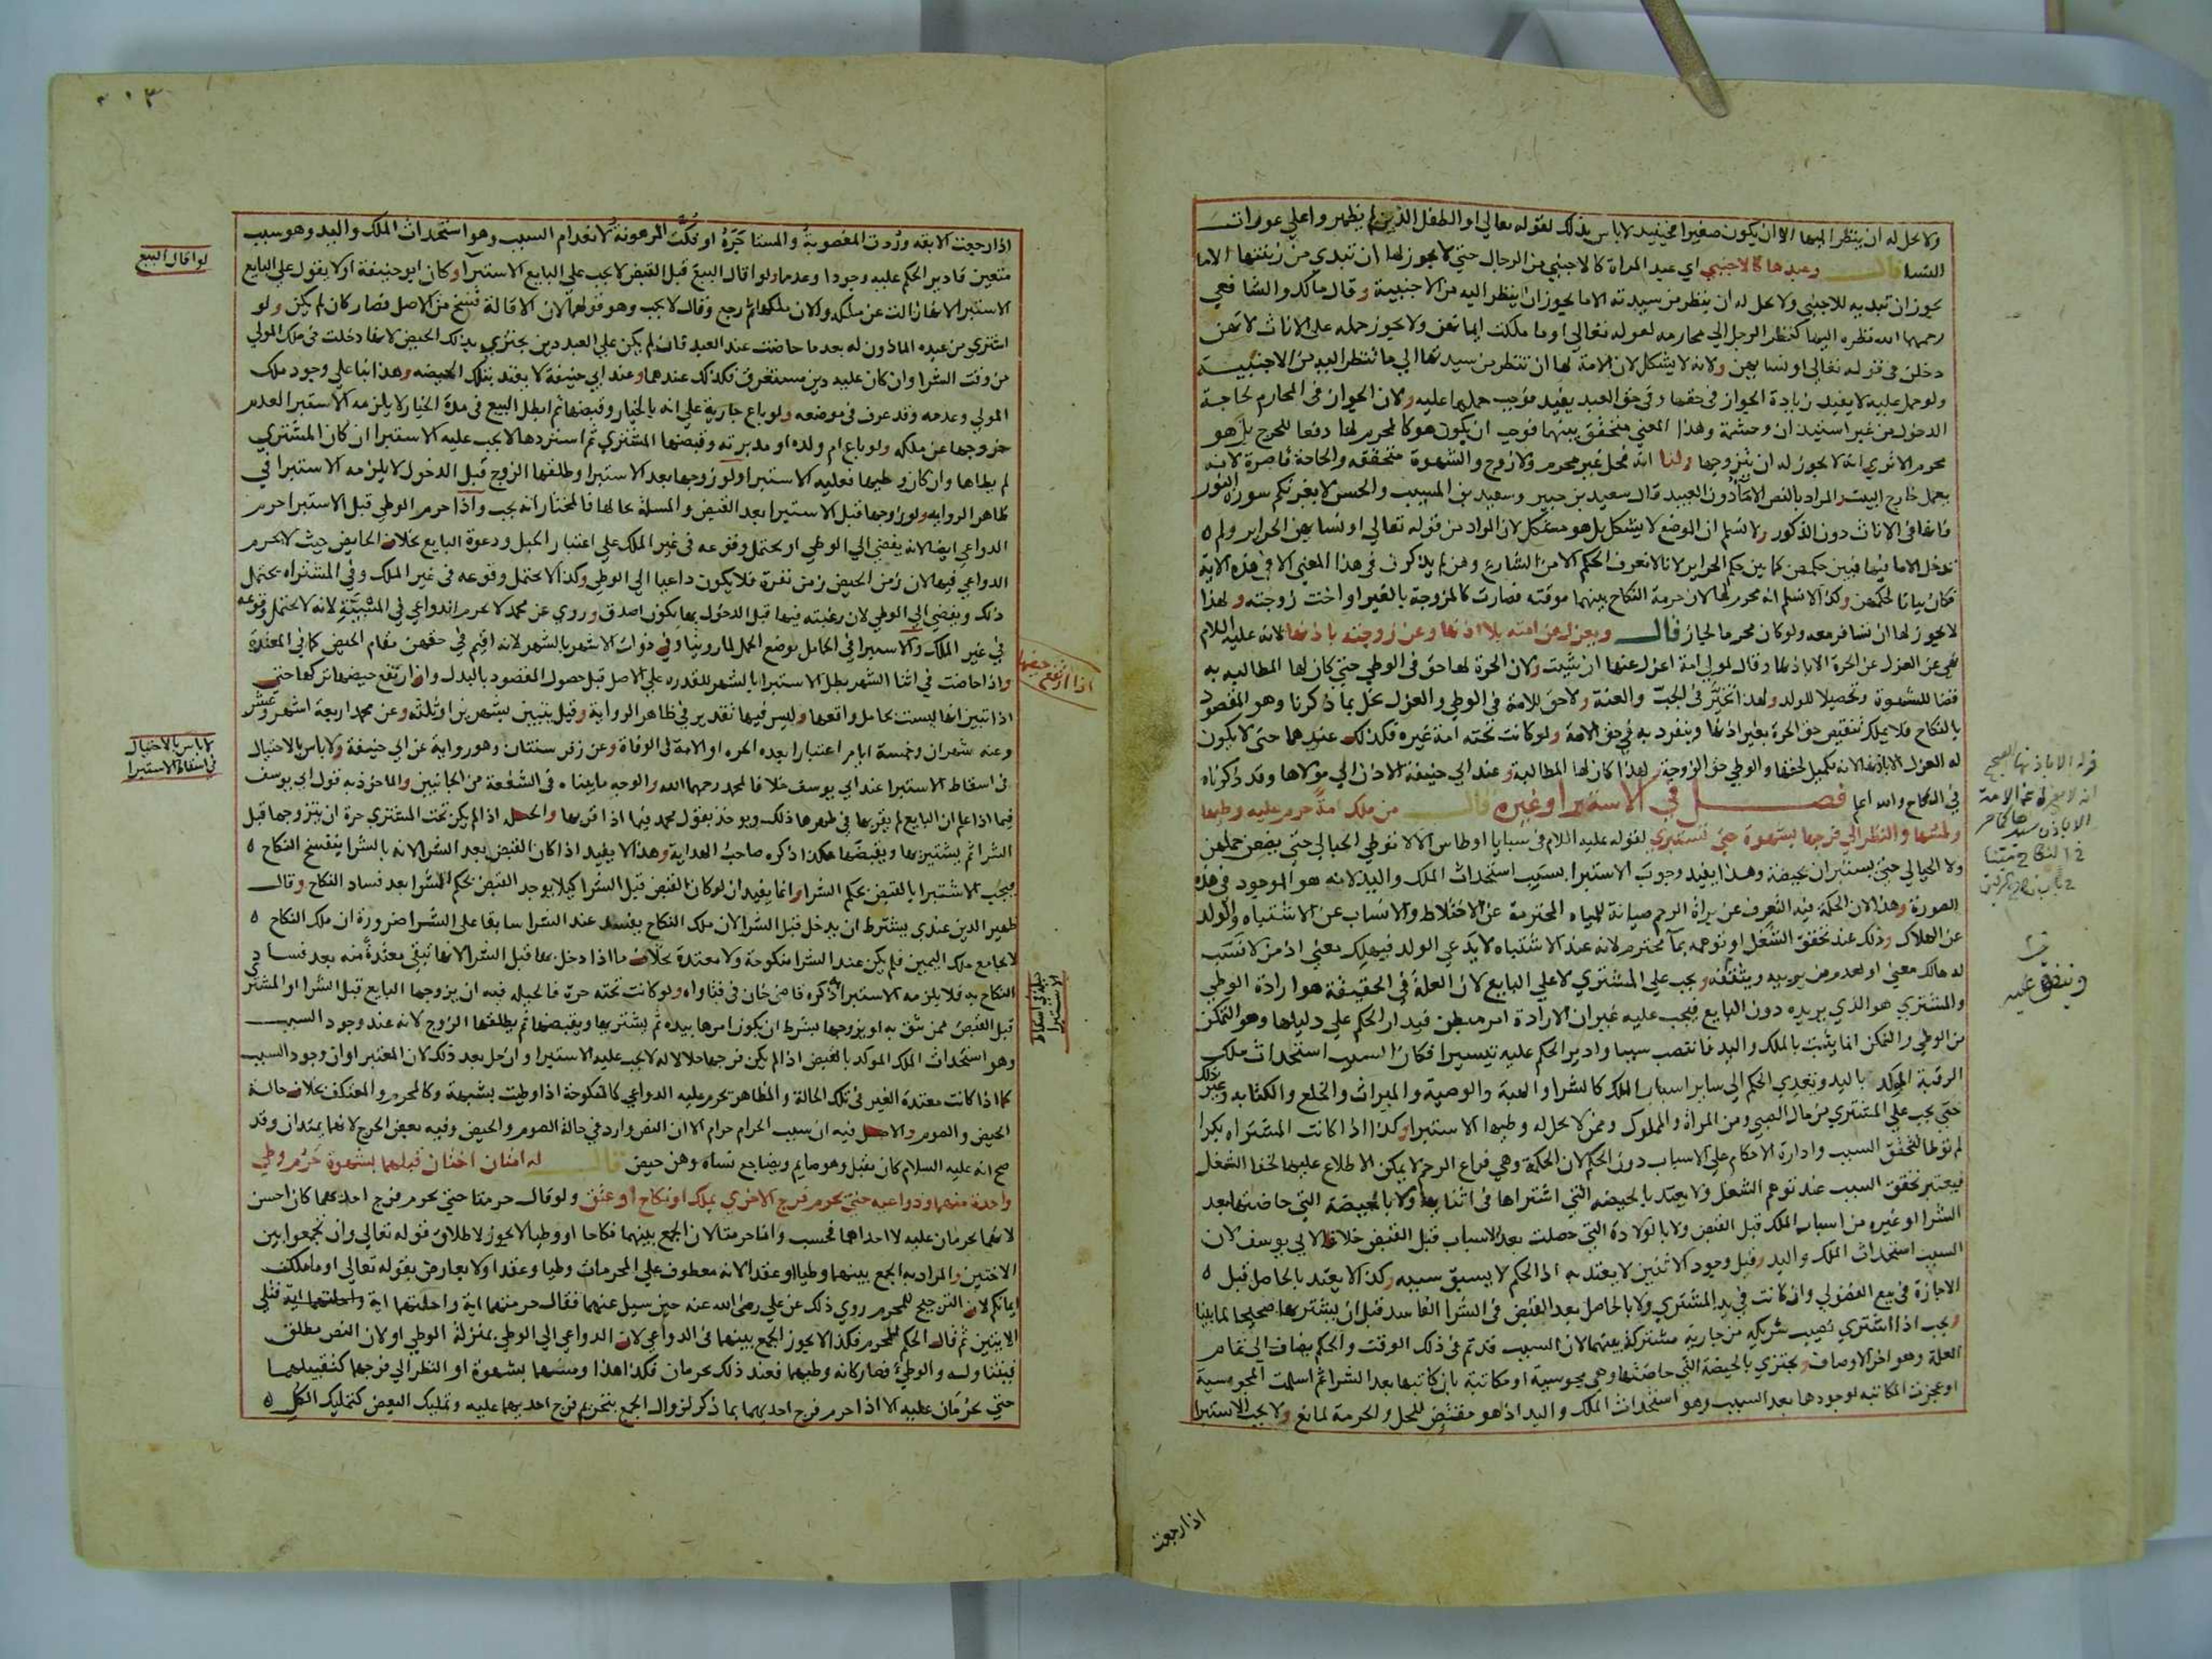 ولا يحل له ان ينظر اليها الا ان يكون صغيرا فحينئذ لا باس بذلك لقوله تعالي او الطفل الذين لم يظهروا علي عورات
النسا قال وعبدها كالاجنبي اي عبد المراة كالاجنبي من الرجال حتي لا يجوز لها ان تبدي من زينتها الا ما
يجوز ان تبديه للاجنبي ولا يحل له ان ينظر من سيدته الا ما يجوز ان ينظر اليه من الاجنبية وقال مالك والشافعي
رحمهما الله نظره اليها كنظر الرجل الي محارمه لقوله تعالي او ما ملكت ايمانهن ولا يجوز حمله علي الاناث لانهن
دخلن في قوله تعالي او نسايهن ولانه لا يشكل لان للامة لها ان تنظر من سيدتها الي ما تنظر اليه من الاجنبية
ولو حمل عليه لا يفيد زيادة الجواز في حقها وفي حق العبد يفيد فوجب حملها عليه ولان الجواز في المحارم لحاجة
الدخول من غير استيذان وحشمة وهذا المعني متحقق بينهما فوجب ان يكون هو كالمحرم لها دفعا للحرج بل هو
محرم الا تري انه لا يجوز له ان يتزوجها ولنا انه فحل غير محرم ولا زوج والشهوة متحققة والحاجة قاصرة لانه
يعمل خارج البيت والمراد بالنص الاماء دون العبيد قال سعيد بن جبير وسعيد بن المسيب والحسن لا يغرنكم سورة النور
فانها في الاناث دون الذكور ولا نسلم ان الموضع لا يشكل بل هو مشكل لان المراد من قوله تعالي او نسايهن الحراير ولم
تدخل الاما فيها فبين حكمهن كما بين حكم الحراير لانا لا نعرف الحكم الا من الشارع وهن لم يذكرن في هذا المعني الا في هذه الاية
فكان بيانا لحكمهن وكذا لا نسلم انه محرم لها لان حرمة النكاح بينهما موقتة فصارت كالمزوجة بالغير او اخت زوجته ولهذا
لا يجوز لها ان تسافر معه ولو كان محرما لجاز قال ويعزل عن امته بلا اذنها وعن زوجته باذنها لانه عليه السلام
نهي عن العزل عن الحرة الا باذنها وقال لمولي امة اعزل عنها ان شيت ولان الحرة لها حق في الوطي حتي كان لها المطالبة به
قضا للشهوة وتحصيلا للولد ولهذا تخير في الجب والعنة ولا حق للامة في الوطي والعزل يخل بما ذكرنا وهو المقصود
بالنكاح فلا يملك تنقيص حق الحرة بغير اذنها وينفرد به في حق الامة ولو كانت تحته امة غيره فكذلك عندهما حتي لا يكون
له العزل الا باذنها لانه تكميل لحقها والوطي حق الزوجة ولهذا كان لها المطالبة وعند ابي حنيفة الاذن الي مولاها وقد ذكرناه
في النكاح والله اعلم فصل في الاستبرا وغيره قال من ملك امة حرم عليه وطيها
ولمسها والنظر الي فرجها بشهوة حتي تستبري لقوله عليه السلام في سبايا اوطاس الا لا توطي الحبالي حتي يضعن حملهن
ولا الحيالي حتي يستبران بحيضة وهذا يفيد وجوب الاستبرا بسبب استحداث الملك واليد لانه هو الموجود في هذه
الصورة وهذا لان الحكمة فيه التعرف عن براة الرحم صيانة للمياه المحترمة عن الاختلاط والانساب عن الاشتباه والولد
عن الهلاك وذلك عند تحقق الشغل او توهمه بماء محترم لانه عند الاشتباه لا يدعي الولد فيهلك معني اذ من لا نسب
له هالك معني او لعدم من يربيه ويثقفه ويجب علي المشتري لا علي البايع لان العلة في الحقيقة هو ارادة الوطي
والمشتري هو الذي يريده دون البايع فيجب عليه غير ان الارادة امر مبطن فيدار الحكم علي دليلها وهو التمكن
من الوطي والتمكن انما يثبت بالملك واليد فانتصب سببا وادير الحكم عليه تيسيرا فكان السبب استحداث ملك
الرقبة الموكد باليد وتعدي الحكم الي ساير اسباب الملك كالشرا والهبة والوصية والميراث والخلع والكتابة وغير ذلك
حتي يجب علي المشتري من مال الصبي ومن المراة والمملوك وممن لا يحل له وطيها الاستبرا وكذا اذا كانت المشتراه بكرا
لم توطا لتحقق السبب وادارة الاحكام علي الاسباب دون الحكم لان الحكمة وهي فراغ الرحم لا يمكن الاطلاع عليها لخفا الشغل
فيعتبر تحقق السبب عند توهم الشغل ولا يعتد بالحيضة التي اشتراها في اثنايها ولا بالحيضة التي حاضتها بعد
الشرا او غيره من اسباب الملك قبل القبض ولا بالولادة التي حصلت بعد الاسباب قبل القبض خلافا لابي يوسف لان
السبب استحداث الملك واليد وقبل وجود الاثنين لا يعتد به اذ الحكم لا يسبق سببه وكذا لا يعتد بالحاصل قبل
الاجازة في بيع الفضولي وان كانت في يد المشتري ولا بالحاصل بعد القبض في الشرا الفاسد قبل ان يشتريها صحيحا لما بينا
ويجب اذا اشتري نصيب شريكه من جارية مشتركة بينهما لان السبب قد تم في ذلك الوقت والحكم يضاف الي تمام
العلة وهو اخر الاوصاف ويجتزي بالحيضة التي حاضتها وهي مجوسية او مكاتبة بان كاتبها بعد الشرا ثم اسلمت المجوسية
او عجزت المكاتبة لوجودها بعد السبب وهو استحداث الملك واليد اذ هو مقتض للحل والحرمة لمانع ولا يجب الاستبرا
قوله الا باذنها الصحيح
الا باذن سيدها
وينفق عليه
اذا رجعت
٣٠٣
اذا رجعت الابقة وردت المغصوبة والمستاجرة او فكت المرهونة لانعدام السبب وهو استحداث الملك واليد وهو سبب
متعين فادير الحكم عليه وجودا وعدما ولو اقال البيع قبل القبض لا يجب علي البايع الاستبرا وكان ابو حنيفة اولا يقول علي البايع
الاستبرا لانها زالت عن ملكه والان ملكها ثم رجع وقال لا يجب وهو قولهما لان الاقالة فسخ من الاصل فصار كان لم يكن ولو
اشتري من عبده الماذون له بعد ما حاضت عند العبد فان لم يكن علي العبد دين يجتزي بذلك الحيض لانها دخلت في ملك المولي
من وقت الشرا وان كان عليه دين مستغرق فكذلك عندهما وعند ابي حنيفة لا يعتد بتلك الحيضة وهذا بنا علي وجود ملك
المولي وعدمه وقد عرف في موضعه ولو باع جارية علي انه بالخيار وقبضها ثم ابطل البيع في مدة الخيار لا يلزمه الاستبرا لعدم
خروجها عن ملكه ولو باع ام ولده او مدبرته وقبضها المشتري ثم استردها لا يجب عليه الاستبرا ان كان المشتري
لم يطاها وان كان وطيها فعليه الاستبرا ولو زوجها بعد الاستبرا وطلقها الزوج قبل الدخول لا يلزمه الاستبرا في
ظاهر الرواية ولو زوجها قبل الاستبرا بعد القبض والمسلة بحالها فالمختار انه يجب واذا حرم الوطي قبل الاستبرا حرم
الدواعي ايضا لانه يفضي الي الوطي او يحتمل وقوعه في غير الملك علي اعتبار الحبل ودعوة البايع بخلاف الحايض حيث لا يحرم
الدواعي فيها لان زمن الحيض زمن نفرة فلا يكون داعيا الي الوطي وكذا لا يحتمل وقوعه في غير الملك وفي المشتراه يحتمل
ذلك ويفضي الي الوطي لان رغبته فيها قبل الدخول بها يكون اصدق وروي عن محمد لا يحرم الدواعي في المسبية لانه لا يحتمل وقوعه
في غير الملك والاستبرا في الحامل بوضع الحمل لما روينا وفي ذوات الاشهر بالشهر لانه اقيم في حقهن مقام الحيض كما في المعتدة
واذا حاضت في اثنا الشهر بطل الاستبرا بالشهر للقدرة علي الاصل قبل حصول المقصود بالبدل وان ارتفع حيضها تركها حتي
اذا تبين انها ليست بحامل واقعها وليس فيها تقدير في ظاهر الرواية وقيل يتبين بشهرين او ثلثه وعن محمد اربعة اشهر وعشر
وعنه شهران وخمسة ايام اعتبارا بعدة الحره او الامة في الوفاة وعن زفر سنتان وهو رواية عن ابي حنيفة ولا باس بالاحتيال
في اسقاط الاستبرا عند ابي يوسف خلافا لمحمد رحمهما الله والوجه ما بيناه في الشفعة من الجانبين والماخوذ به قول ابي يوسف
فيما اذا علم ان البايع لم يقربها في طهرها ذلك ويوخذ بقول محمد فيما اذا قربها والحيلة اذا لم يكن تحت المشتري حرة ان يتزوجها قبل
الشرا ثم يشتريها ويقبضها هكذا ذكره صاحب الهداية وهذا لا يفيد اذا كان القبض بعد الشرا لانه بالشرا ينفسخ النكاح
فيجب الاستبرا بالقبض بحكم الشرا وانما يفيد ان لو كان القبض قبل الشرا كيلا يوجد القبض بحكم الشرا بعد فساد النكاح وقال
ظهير الدين عندي يشترط ان يدخل قبل الشرا لان ملك النكاح يفسد عند الشرا سابقا علي الشرا ضرورة ان ملك النكاح
لا يجامع ملك اليمين فلم يكن عند الشرا منكوحة ولا معتدة بخلاف ما اذا دخل بها قبل الشرا لانها تبقي معتدة منه بعد فساد
النكاح به فلا يلزمه الاستبرا ذكره قاضي خان في فتاواه ولو كانت تحته حرة فالحيلة فيه ان يزوجها البايع قبل الشرا او المشتري
قبل القبض ممن يثق به او يزوجها بشرط ان يكون امرها بيده ثم يشتريها ويقبضها ثم يطلقها الزوج لانه عند وجود السبب
وهو استحداث الملك الموكد بالقبض اذا لم يكن فرجها حلالا له لا يجب عليه الاستبرا وان حل بعد ذلك لان المعتبر اوان وجود السبب
كما اذا كانت معتدة الغير في تلك الحالة والمظاهر تحرم عليه الدواعي كالمنكوحة اذا وطيت بشبهة وكالمحرم والمعتكف بخلاف حالة
الحيض والصوم والاصل فيه ان سبب الحرام حرام الا ان النص وارد في حالة الصوم والحيض وفيه بعض الحرج لانهما يمتدان وقد
صح انه عليه السلام كان يقبل وهو صايم ويضاجع نساه وهن حيض قال له امتان اختان قبلهما بشهوة حرم وطي
واحدة منهما ودواعيه حتي يحرم فرج الاخري بملك او نكاح او عتق ولو قال حرمتا حتي يحرم فرج احداهما كان احسن
لانهما يحرمان عليه لا احداهما فحسب وانما حرمتا لان الجمع بينهما نكاحا او وطيا لا يجوز لاطلاق قوله تعالي وان تجمعوا بين
الاختين والمراد به الجمع بينهما وطيا او عقدا لانه معطوف علي المحرمات وطيا وعقدا ولا يعارض بقوله تعالي او ما ملكت
ايمانكم لان الترجيح للمحرم روي ذلك عن علي رضي الله عنه حين سيل عنهما فقال حرمتهما اية واحلتهما اية فتلي
الايتين ثم قال الحكم للمحرم فكذا لا يجوز الجمع بينهما في الدواعي لان الدواعي الي الوطي بمنزلة الوطي او لان النص مطلق
فيتناوله والوطي فصار كانه وطيهما فعند ذلك يحرمان فكذا هذا ومسهما بشهوة او النظر الي فرجهما كتقبيلهما
حتي يحرمان عليه الا اذا حرم فرج احديهما بما ذكر لزوال الجمع بتحريم فرج احديهما عليه وتمليك البعض كتمليك الكل
لو اقال البيع
اذا ارتفع حيضها
لا باس بالاحتيال
في اسقاط الاستبرا
حيلة في اسقاط
الاستبرا